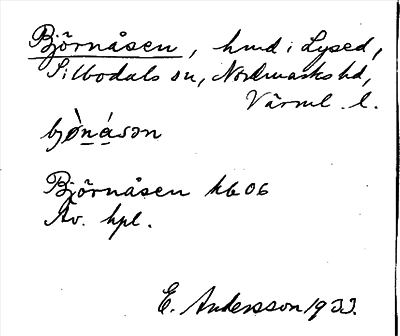 Björnåsen, hmd i Lysed,
Silbodals sn, Nordmarks hd,
Värml. l.
bjö̀ṇáson
Björnåsen kb 06
Äv. hpl.
E. Andersson 1933.